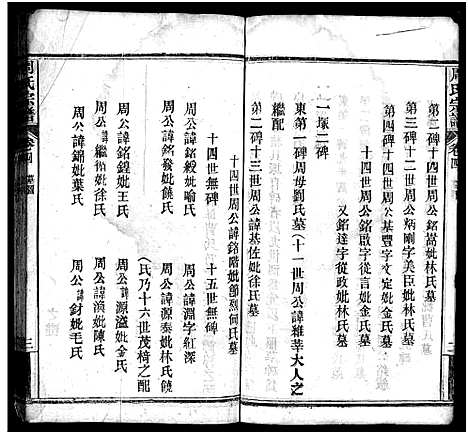 周氏宗譜
卷四
第二碑十三世周公諱銘嵩妣林氏墓
第三碑十二世周公炳剛字美臣妣林氏墓
第四碑十四世周公基豐字文定妣金氏墓
十四世周公銘啟字從言妣金氏墓
又銘達字從政妣林氏墓
一塚二碑
東第一碑周母劉氏墓（十一世周公諱維莘大人之
繼配
第二碑十三世周公諱基佐妣徐氏墓
十四世周公諱銘階妣節烈何氏墓
十四世無碑
十五世無碑
周公諱銘毅妣喻氏
周公諱淵字紅深
周公諱銘發妣饒氏
周公諱源泰妣林氏饒
（氏乃十六世茂椅之配
周公諱銘鍠妣王氏
周公諱源溢妣金氏
周公諱繼偕妣姜氏
周公諱滇妣陳氏
周公諱銘錦妣葉氏
周公諱財妣毛氏
周氏宗譜
卷四
三